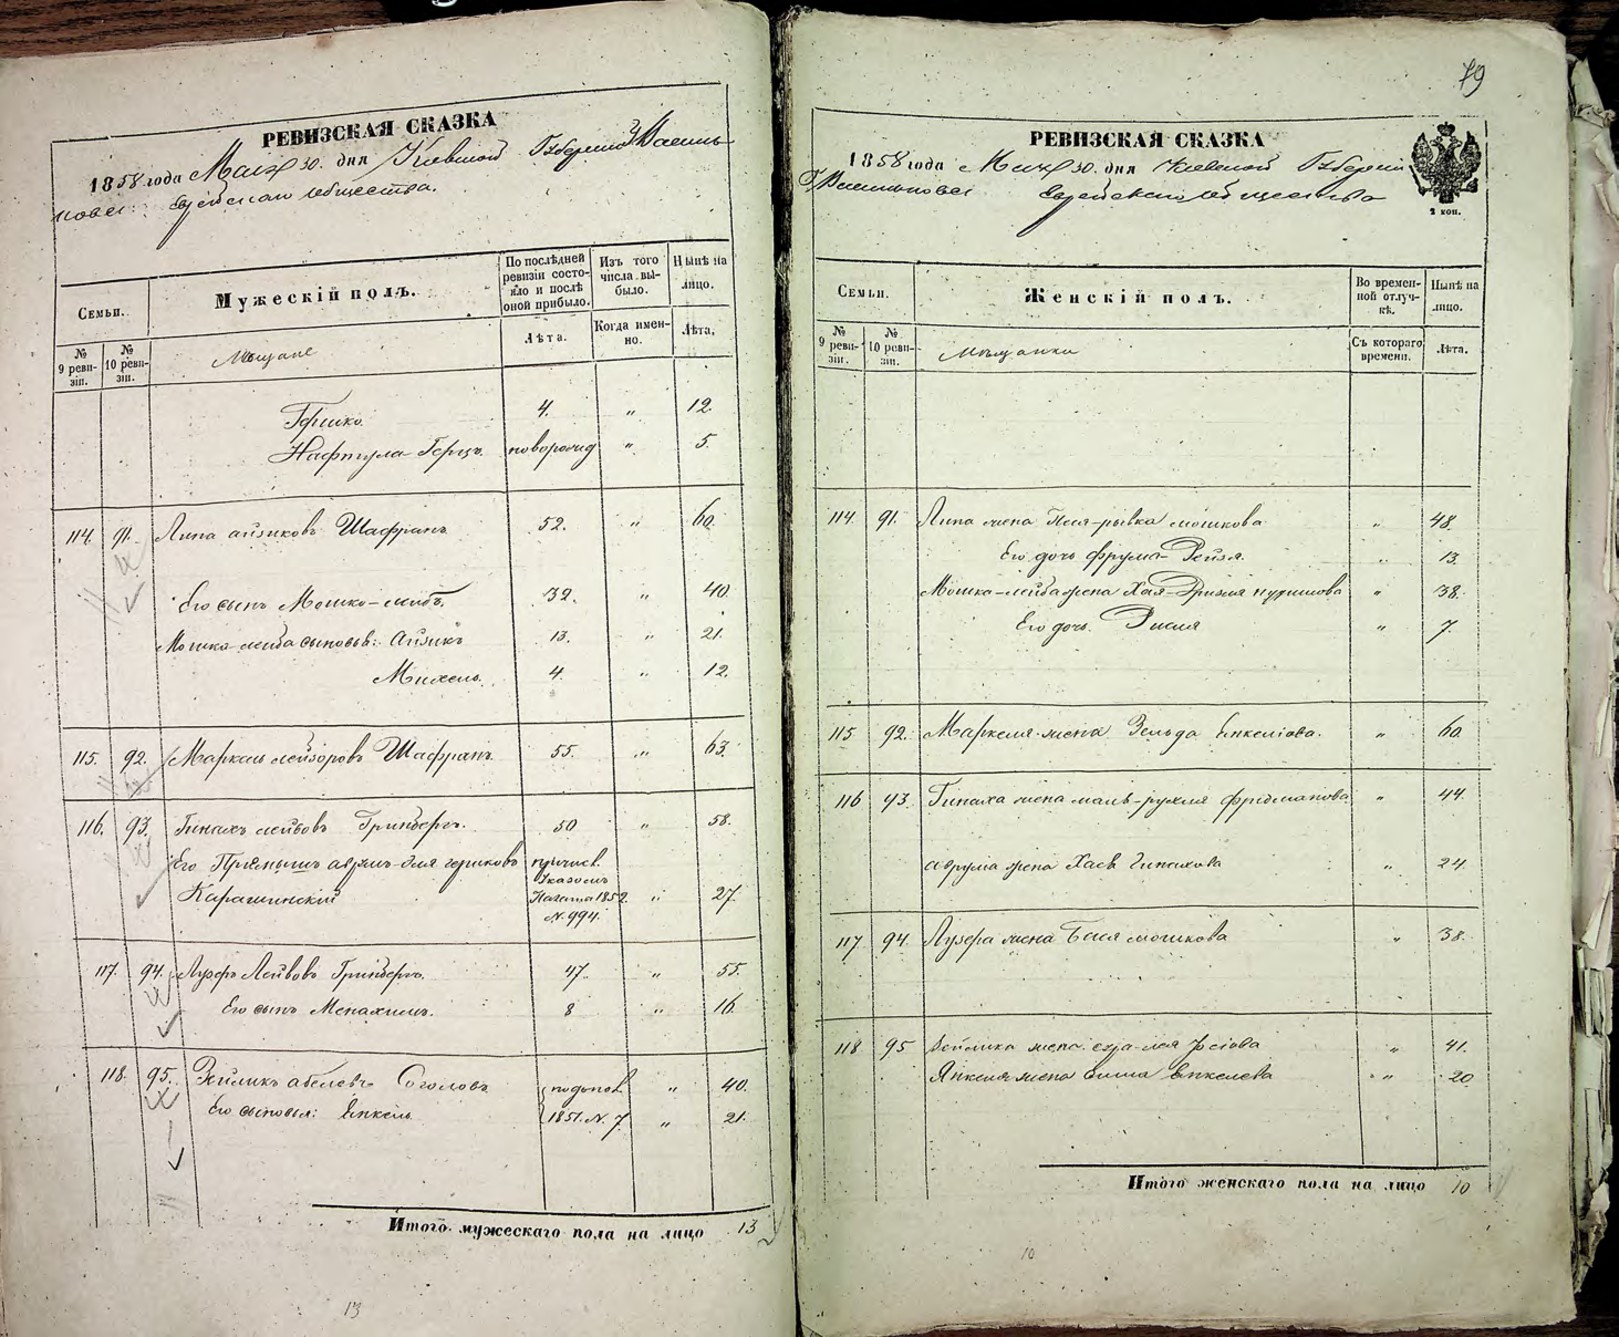 РЕВИЗСКАЯ СКАЗКА
1858 года Мая 30. дня Кіевской Губерніи Г. Василь-
кова: Еврейскаго общества.
Семьи.
Мужескій полъ.
По послѣдней ревизіи состояло и послѣ оной прибыло.
Изъ того числа выбыло.
Нынѣ на лицо.
№ 9 ревизіи.
№ 10 ревизіи.
Мѣщане
Лѣта.
Когда именно.
Лѣта.
Гершко. 4. " 12.
Нафтула-Герцъ новорожд " 5.
114. 91. Липа Айзиковъ Шафранъ 52. " 60.
Его сынъ Мошко-лейбъ. 32. " 40.
Мошка-лейба сыновья: Айзикъ 13. " 21.
Михель. 4. " 12.
115. 92. Маркель лейзоровъ Шафранъ. 55. " 63.
116. 93. Гинахъ лейбовъ Гринбергъ. 50 " 58.
Его Пріемышъ аврумъ-
Карашинскій
причисл. Указомъ Палаты 1852. N. 994. " 27.
117. 94. Лузеръ Лейбовъ Гринбергъ. 47. " 55.
Его сынъ Менахимъ. 8 " 16.
118. 95. Зейликъ абелевъ Соголовъ 40.
Его сыновья: Янкель 1851. N. 7 " 21.
Итого мужескаго пола на лицо 13
13
79
РЕВИЗСКАЯ СКАЗКА
1858 года Мая 30. дня Кіевской Губерніи
Г. Василькова Еврейскаго общества
2 коп.
Семьи.
Женскій полъ.
Во временной отлучкѣ.
Нынѣ на лицо.
№ 9 ревизіи.
№ 10 ревизіи.
Мѣщанки
Съ котораго времени.
Лѣта.
114. 91. Липа жена Песя-рывка мошкова " 48.
Его дочь Фрума-Рейзя. " 13.
Мошка-лейба жена Хая- " 38.
Его дочь " 7.
115 92. Маркеля жена Зельда Янкеліова. " 60.
116 93. Гинаха жена малъ-рухля фридманова " 44.
аврума жена Хаея Гинахова " 24.
117 94. Лузера жена Бася мошкова " 38.
118 95 Зейлика жена Іосіова " 41.
Янкеля жена Сима Янкелева " 20
Итого женскаго пола на лицо 10
10